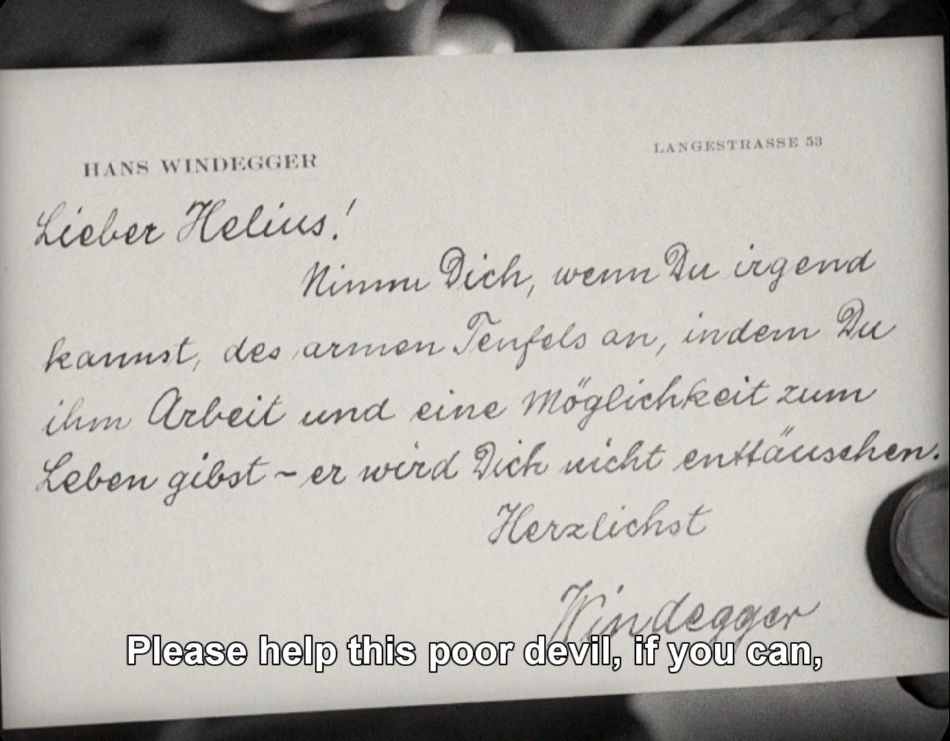 HANS WINDEGGER
LANGESTRASSE 53
Lieber Helius!
Nimm Dich, wenn Du irgend
kannst, des armen Teufels an, indem Du
ihm Arbeit und eine Möglichkeit zum
Leben gibst – er wird Dich nicht enttäuschen.
Herzlichst
Windegger
Please help this poor devil, if you can,